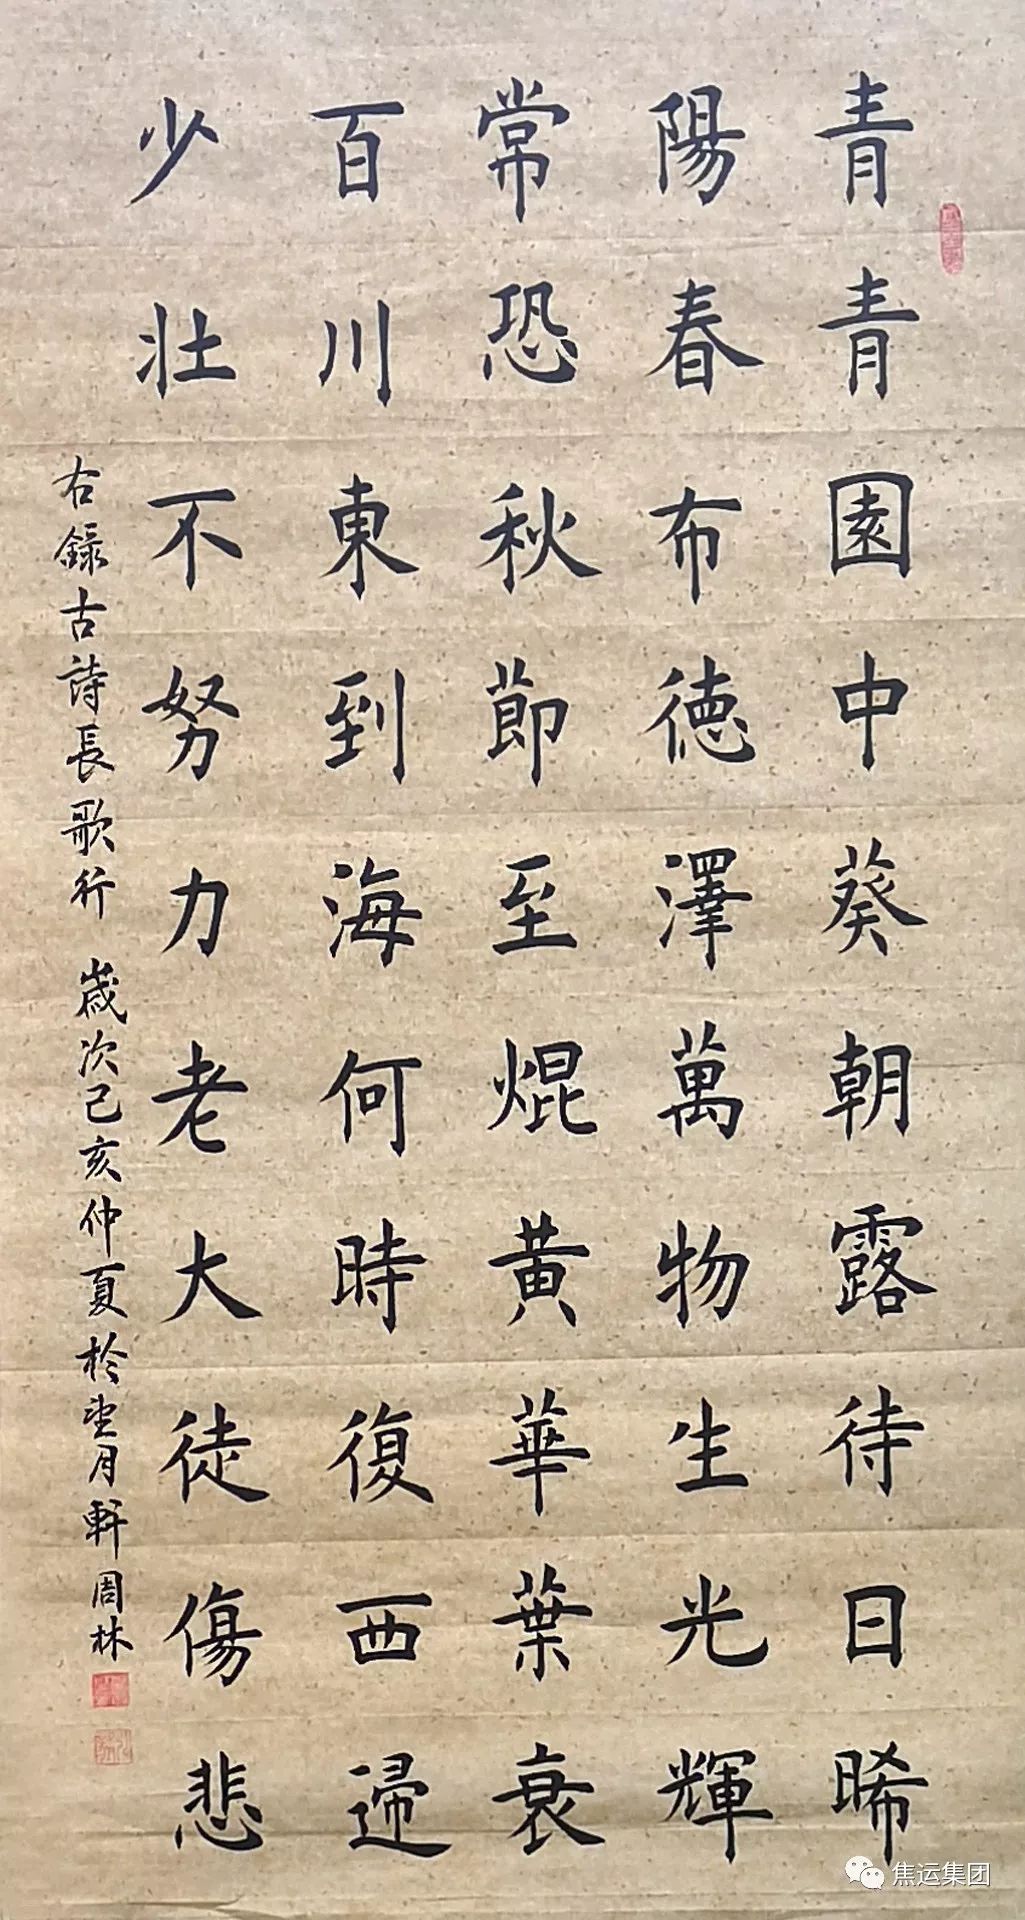 青青園中葵朝露待日晞
陽春布徳澤萬物生光輝
常恐秋節至焜黄華葉衰
百川東到海何時復西歸
少壯不努力老大徒傷悲
右録古詩長歌行 歲次己亥仲夏於望月軒周林
焦运集团